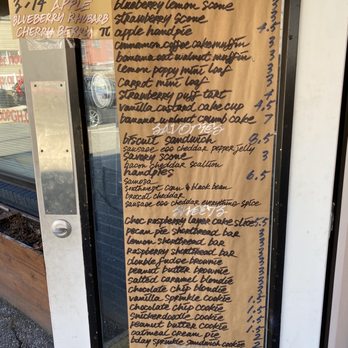 3.14 APPLE
BLUEBERRY RHUBARB
CHERRY BERRY π
blueberry lemon scone 3
strawberry scone 3
apple handpie 4.5
cinnamon coffee cake muffin 3
banana oat walnut muffin 3
lemon poppy mini loaf 3
carrot mini loaf 3
strawberry puff tart 4
vanilla custard cake cup 4.5
banana walnut crumb cake 7
SAVORIES
biscuit sandwich 8.5
sausage egg cheddar pepper jelly
savory scone 3
bacon cheddar scallion
handpies 6.5
samosa
southwest corn & black bean
broccoli cheddar
sausage egg cheddar everything spice
SWEETS
choc raspberry layer cake slice 5.5
pecan pie shortbread bar 3
lemon shortbread bar 3
raspberry shortbread bar 3
double fudge brownie 3
peanut butter brownie 3
salted caramel blondie 3
chocolate chip blondie 3
vanilla sprinkle cookie 1.5
chocolate chip cookie 1.5
snickerdoodle cookie 1.5
peanut butter cookie 1.5
oatmeal cream pie
bday sprinkle sandwich cookie